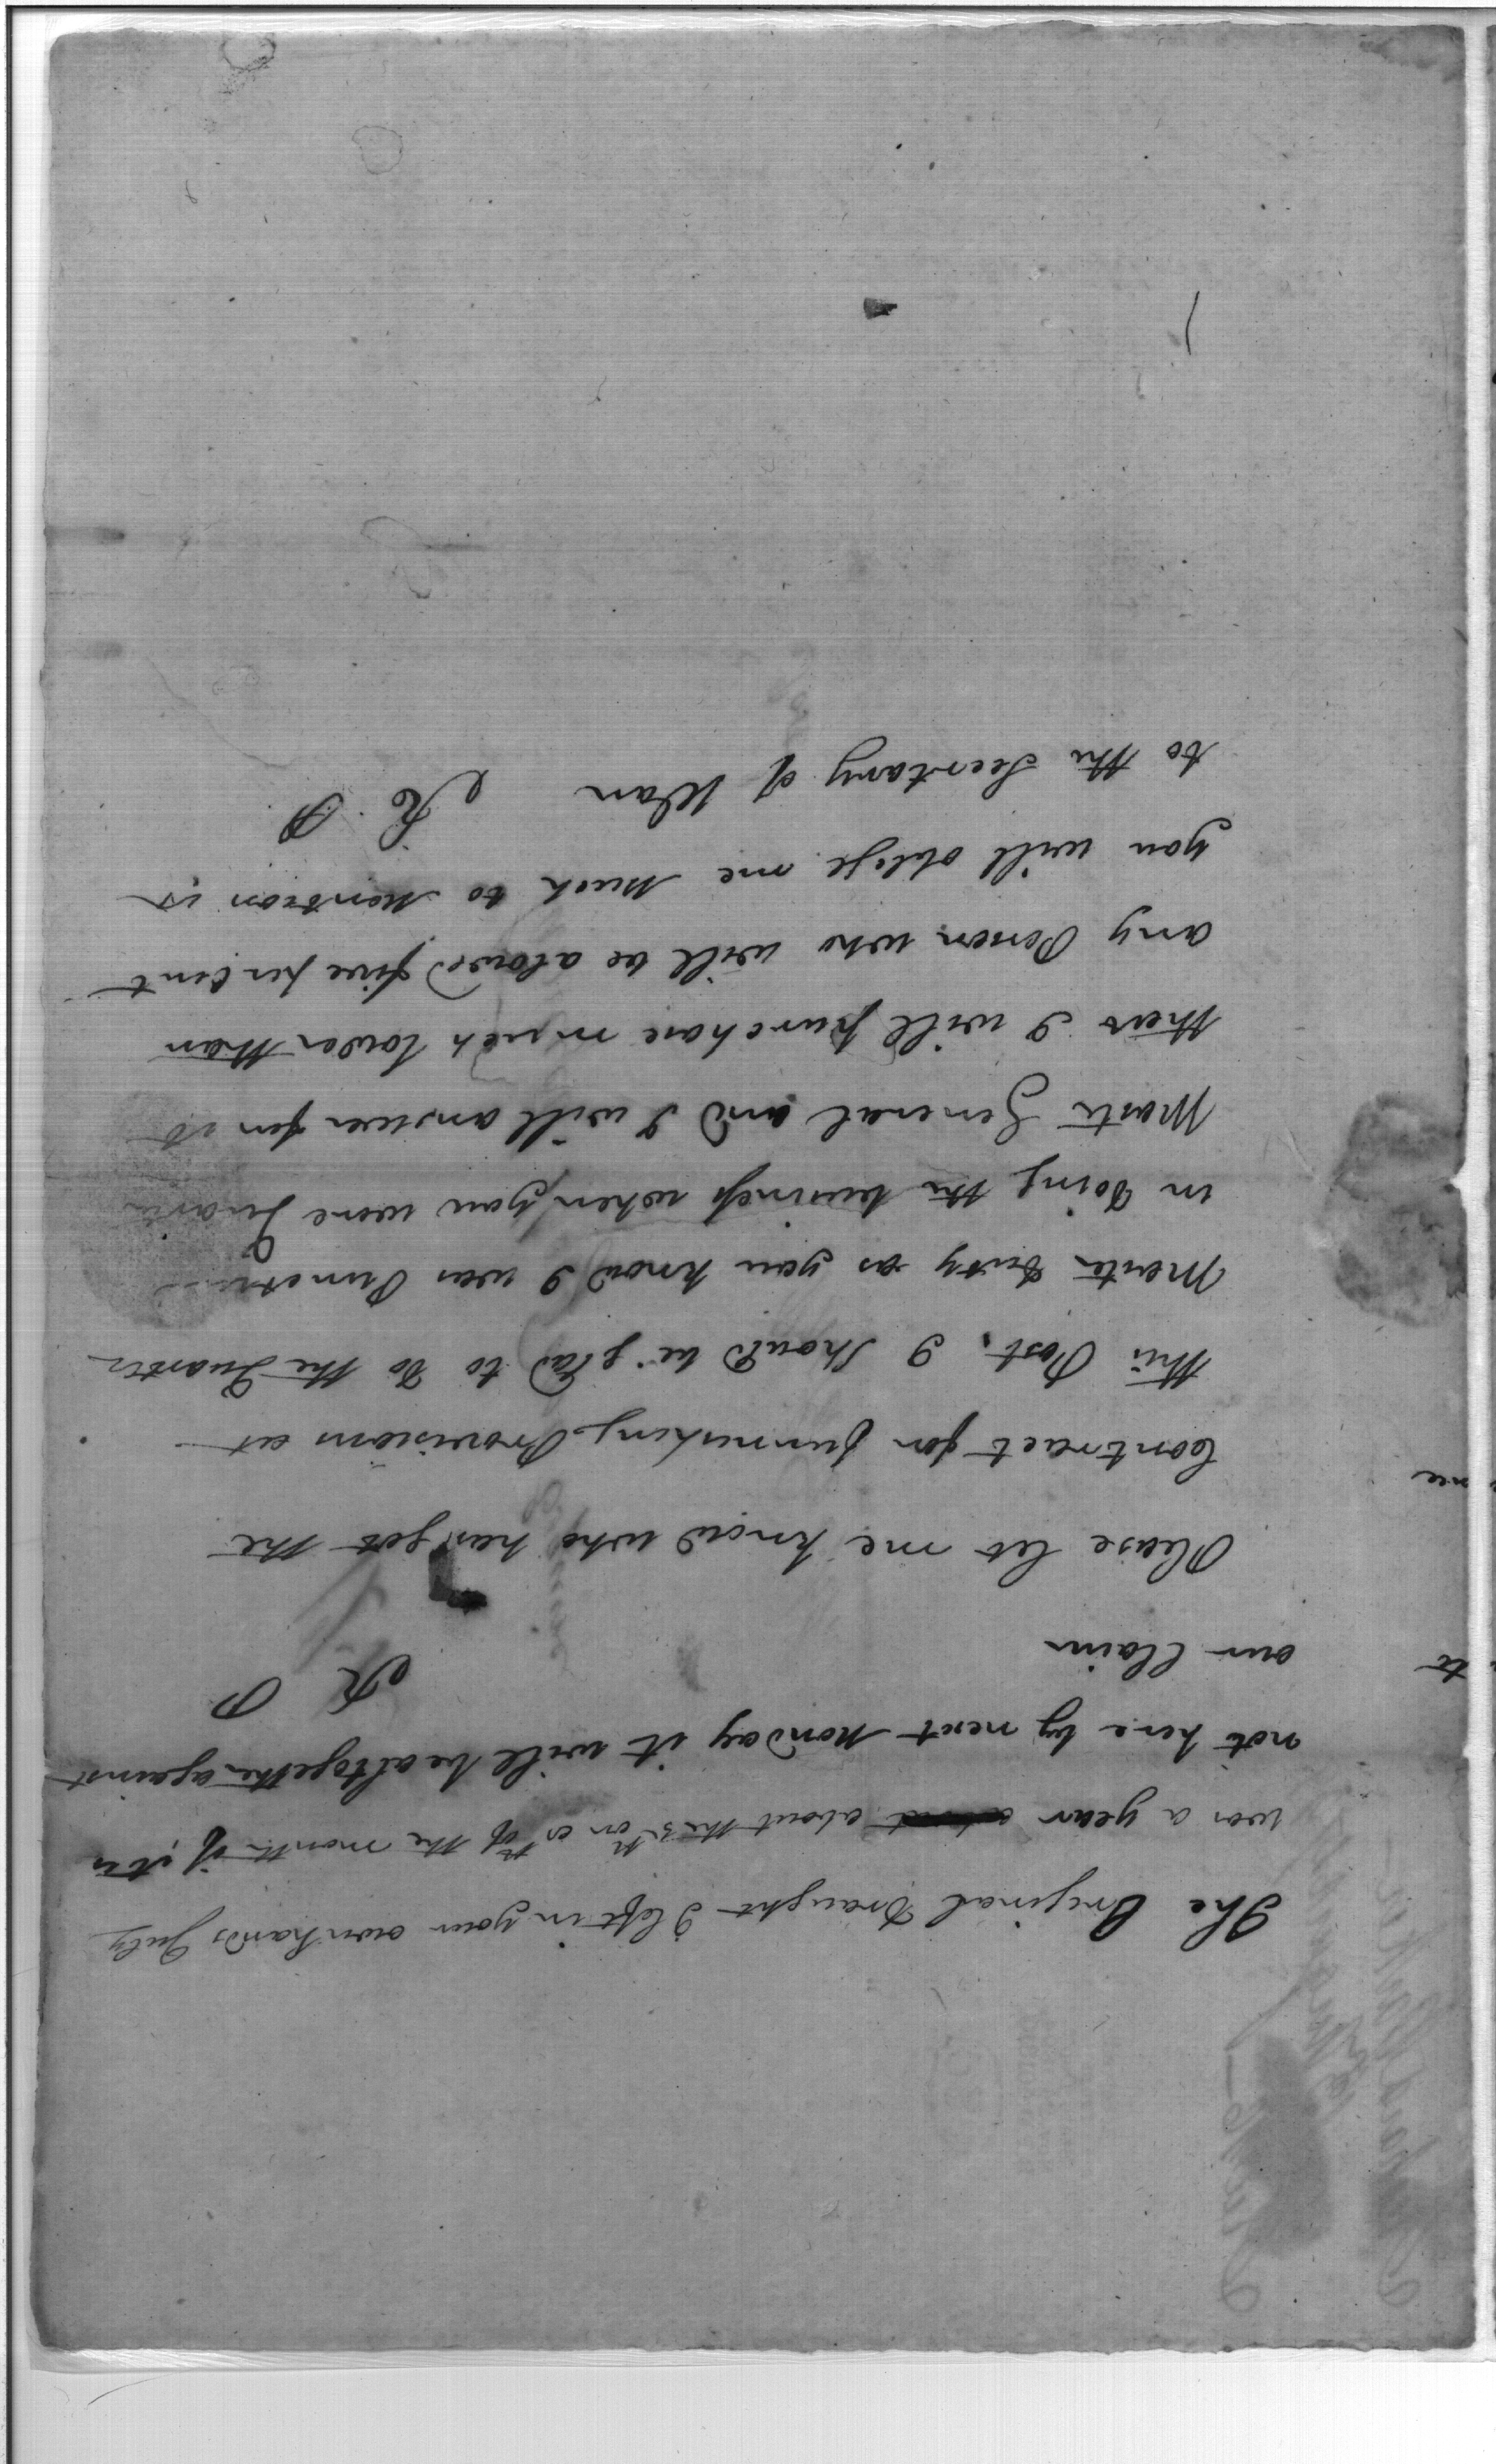 The Original Draught I left in your own hands July
was a year about the 5th or 6th of the month if it is
not here by next Monday it will be altogether against
our Claim
R P
Please let me know who has got the
Contract for furnishing Provisions at
this Post. I Should be glad to do the Quarter
Master duty as you know I was
in doing the business when you were Quarter
Master General and I will answer for it
that I will purchase much lower than
any Person who will be alowed five per Cent
you will oblige me Much to Mention it
to the Secretary of War
R P